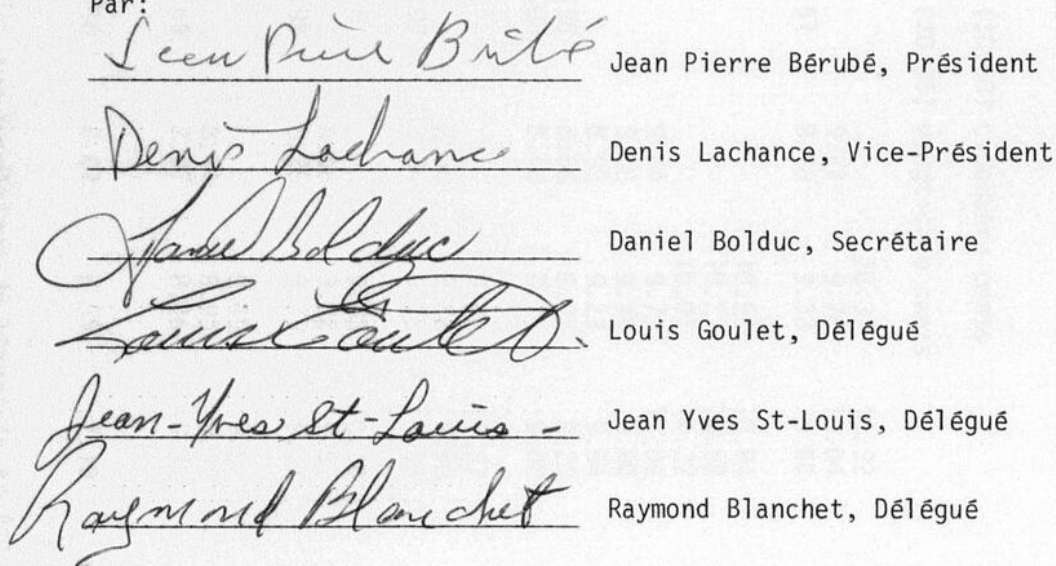 Par:
Jean Pierre Bérubé Jean Pierre Bérubé, Président
Denis Lachance Denis Lachance, Vice-Président
Daniel Bolduc Daniel Bolduc, Secrétaire
Louis Goulet Louis Goulet, Délégué
Jean-Yves St-Louis - Jean Yves St-Louis, Délégué
Raymond Blanchet Raymond Blanchet, Délégué